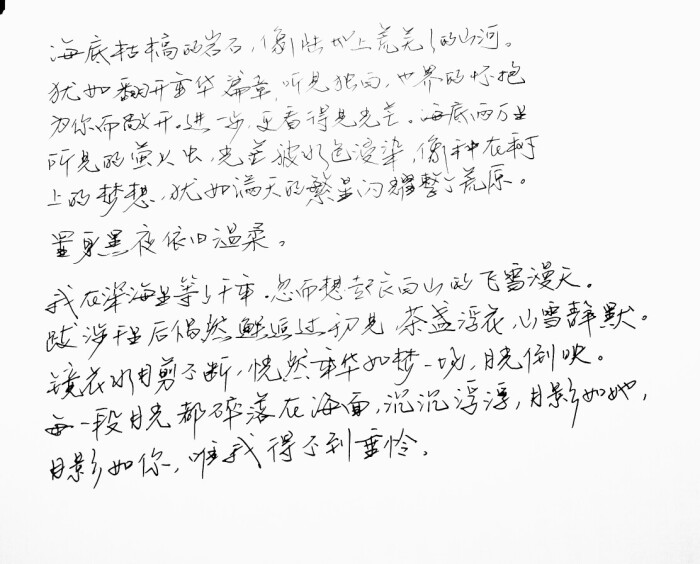 海底枯槁的岩石，像陆地上荒芜的山河。
犹如翻开年华篇章，听见独白，世界的怀抱
为你而敞开。进一步，更看得见光芒。海底两万里
所见的萤火虫，光芒被水色渲染，像种在利于
上的梦想，犹如满天的繁星闪耀整个荒原。
置身黑夜依旧温柔。
我在深海里等了千年，忽而想起长白山的飞雪漫天。
跋涉千里后偶然邂逅过初见，茶盏浮衣，山雪静默。
镜花水月剪不断，恍然年华如梦一场，月光倒映。
每一段月光都碎落在海面，沉沉浮浮，月影如她，
月影如你，唯我得不到垂怜。